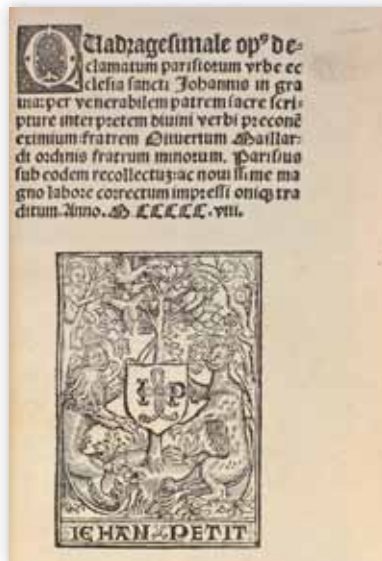 QUadragesimale opꝰ de-
clamatum parisiorum vrbe ec
clesia sancti Johannis in gra
uia: per venerabilem patrem sacre scri-
pture interpretem diuini verbi preconē
eximium fratrem Oliuerium Maillar-
di ordinis fratrum minorum. Parisius
sub eodem recollectuꝫ: ac nouissime ma
gno labore correctum impressioniqꝫ tra
ditum. Anno. M CCCCC. viii.
I P
IEHAN PETIT